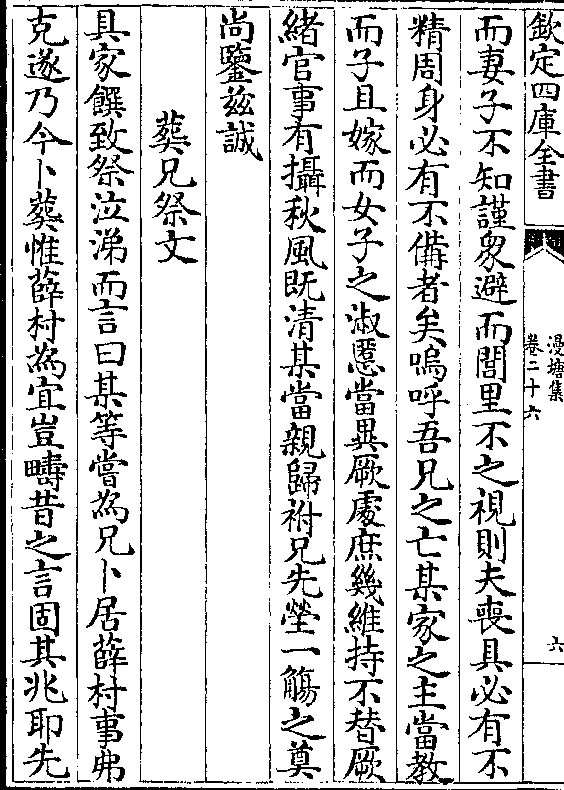 欽定四庫全書
漫塘集
卷二十六
六
而妻子不知謹衆避而閭里不之視則夫喪具必有不
精周身必有不備者矣嗚呼吾兄之亡某家之主當教
而子且嫁而女子之淑慝當異厥處庶幾維持不替厥
緒官事有攝秋風既清某當親歸祔兄先塋一觴之奠
尚鑒兹誠
葬兄祭文
具家饌致祭泣涕而言曰某等嘗為兄卜居薛村事弗
克遂乃今卜葬惟薛村為宜豈疇昔之言固其兆耶先